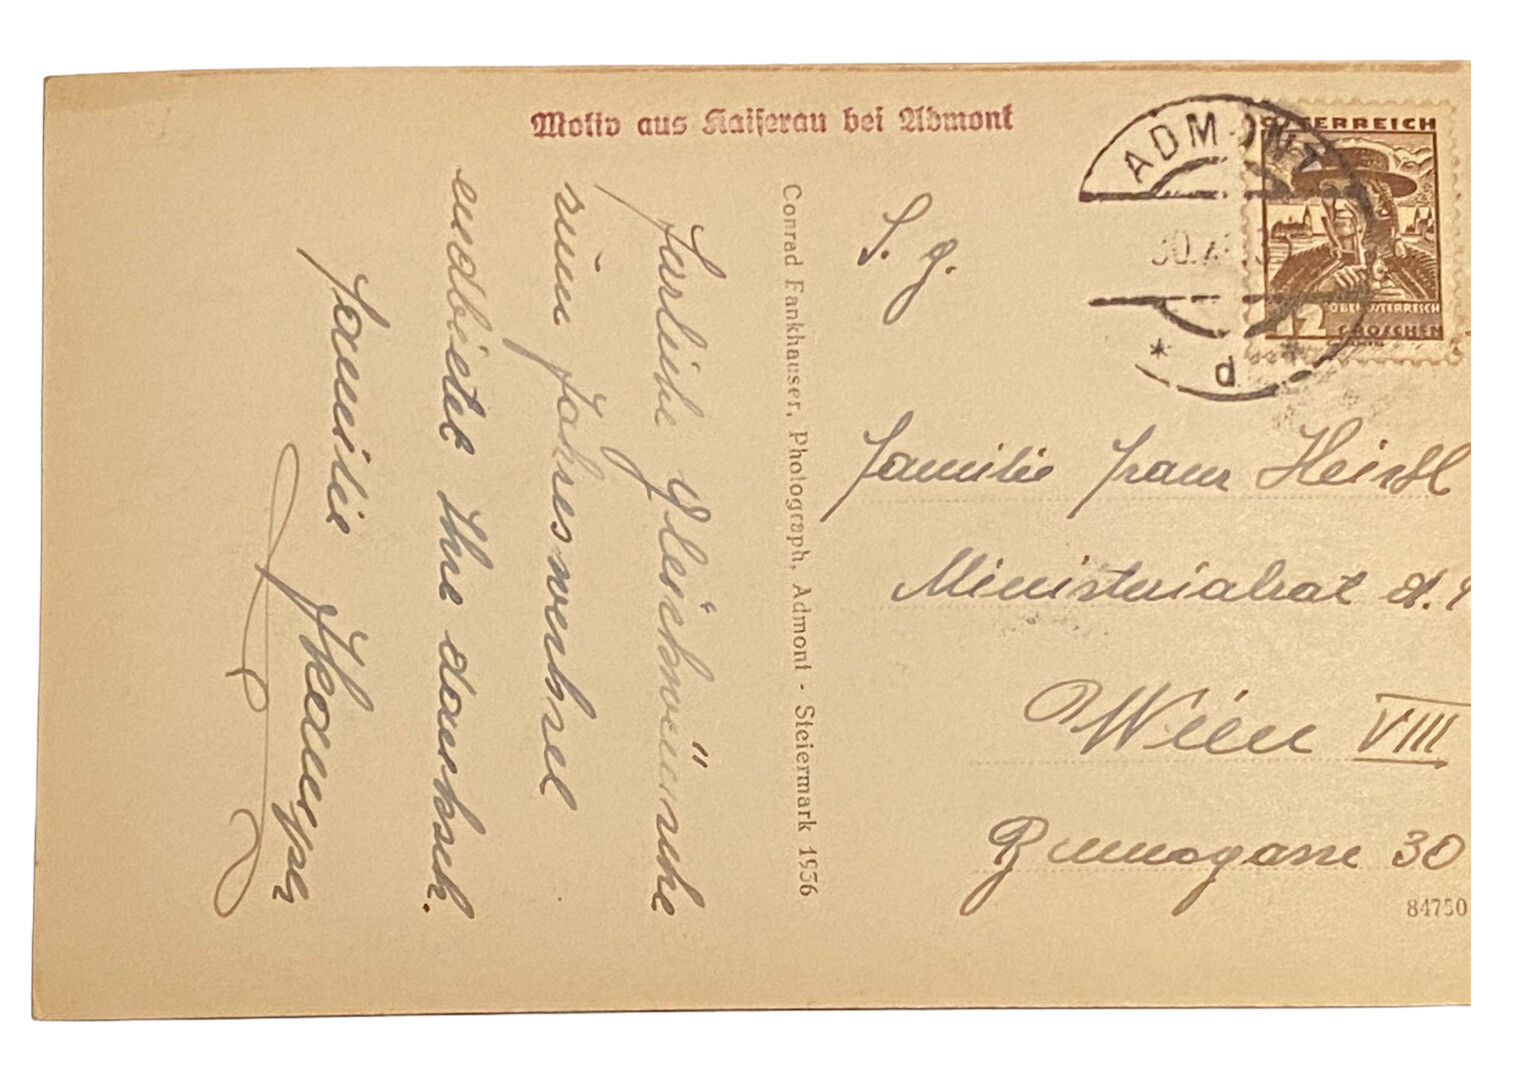 Motiv aus Kaiserau bei Admont
Herzliche Glückwünsche
zum Jahreswechsel
endbietet Ihne dankseh.
Familie
Conrad Fankhauser, Photograph, Admont - Steiermark 1936
ADMONT
30.
d
ÖSTERREICH
OBERÖSTERREICH
12 GROSCHEN
S. g.
Familie Franz Heindl
Ministerialrat d.
Wien VIII
30
84750